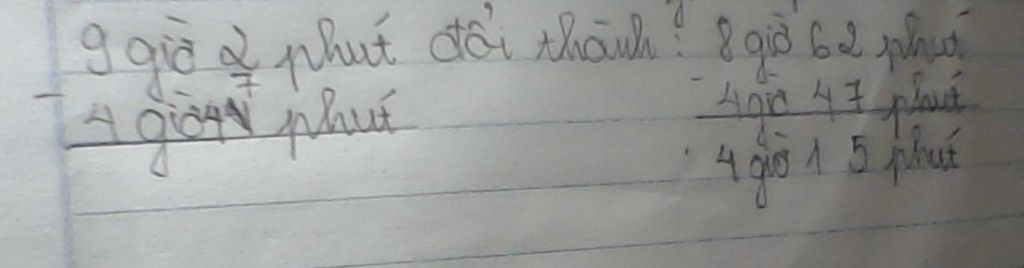 9 giờ 2 phút đổi thành: 8 giờ 62 phút
- 4 giờ 47 phút - 4 giờ 47 phút
4 giờ 15 phút